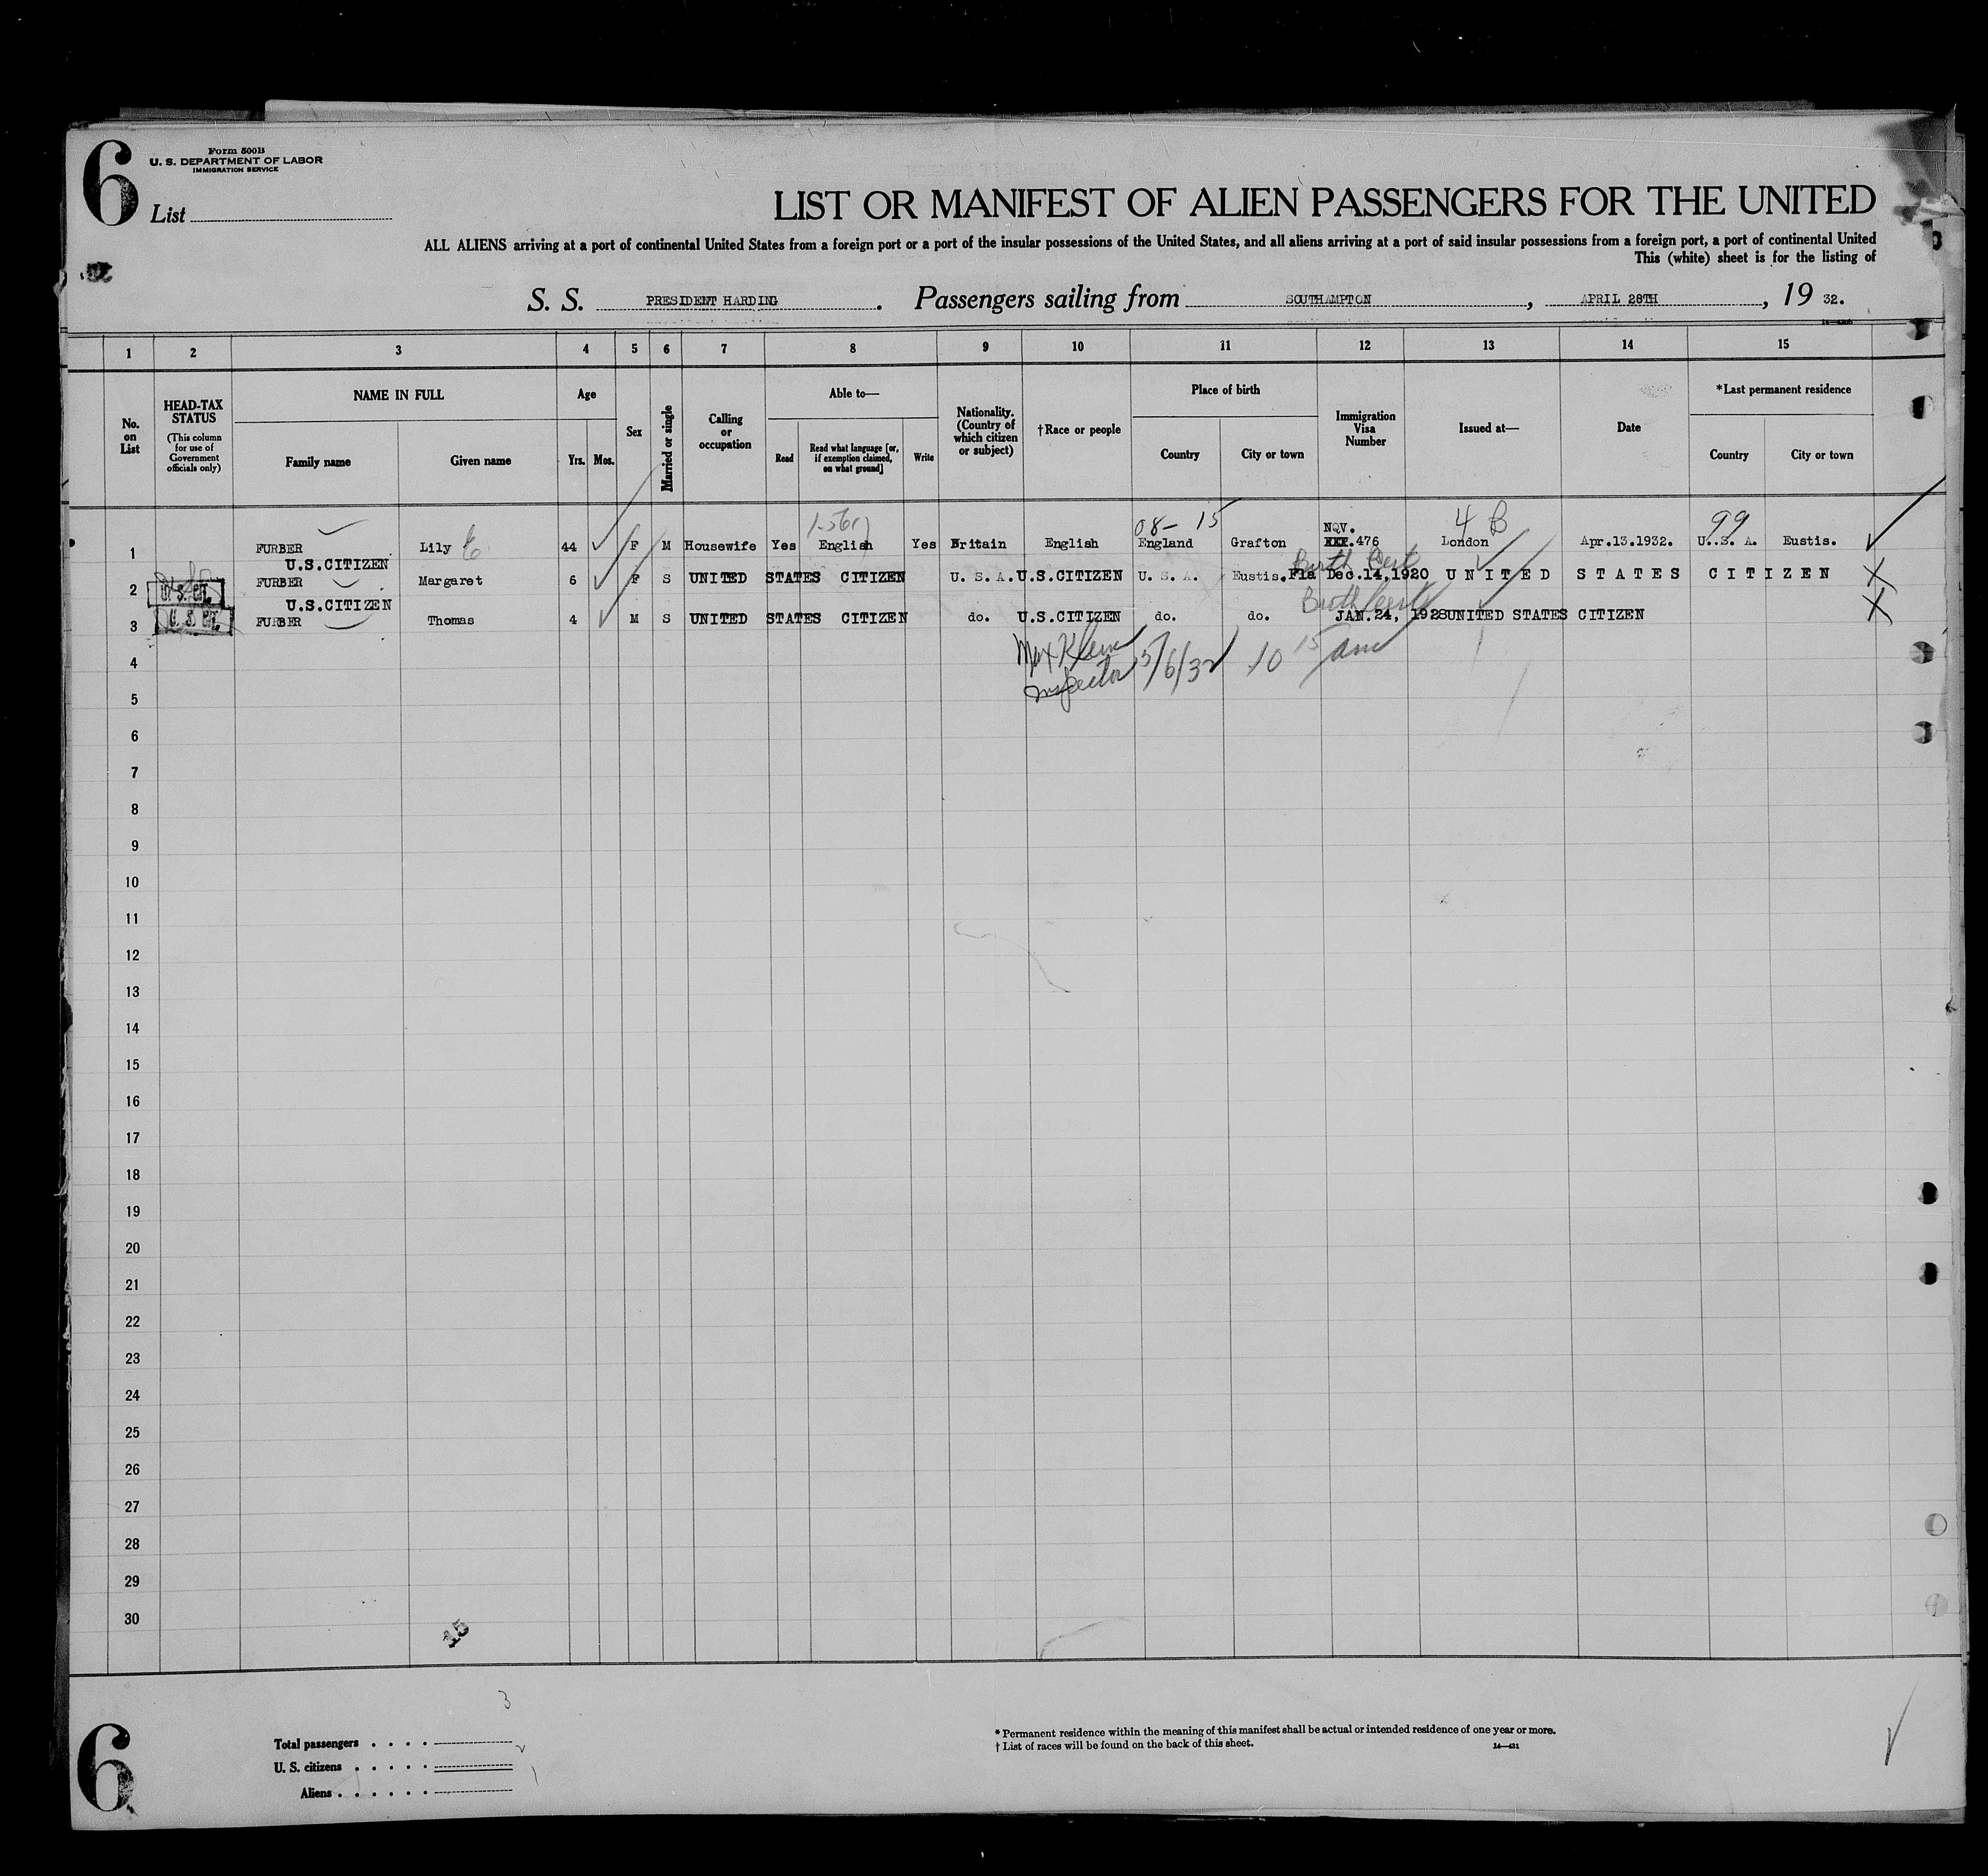 6
Form 500B
U. S. DEPARTMENT OF LABOR
IMMIGRATION SERVICE
List
LIST OR MANIFEST OF ALIEN PASSENGERS FOR THE UNITED
ALL ALIENS arriving at a port of continental United States from a foreign port or a port of the insular possessions of the United States, and all aliens arriving at a port of said insular possessions from a foreign port, a port of continental United
This (white) sheet is for the listing of
S. S. PRESIDENT HARDING. Passengers sailing from SOUTHAMPTON, APRIL 28TH, 19 32.
1 2 3 4 5 6 7 8 9 10 11 12 13 14 15
No. on List
HEAD-TAX STATUS
(This column for use of Government officials only)
NAME IN FULL
Family name Given name
Age
Yrs. Mos.
Sex
Married or single
Calling or occupation
Able to—
Read
Read what language [or, if exemption claimed, on what ground]
Write
Nationality. (Country of which citizen or subject)
†Race or people
Place of birth
Country City or town
Immigration Visa Number
Issued at—
Date
*Last permanent residence
Country City or town
08- 15 NQV. 4 B 99
1 FURBER Lily E 44 F M Housewife Yes English Yes Britain English England Grafton 476 London Apr.13.1932. U.S. A. Eustis.
U.S.CITIZEN Birth Cert
2 U. S. CIT. FURBER Margaret 6 F S UNITED STATES CITIZEN U. S. A. U.S.CITIZEN U. S. A. Eustis.Fla Dec.14,1920 UNITED STATES CITIZEN
U.S.CITIZEN Birth Cert
3 U. S. CIT. FURBER Thomas 4 M S UNITED STATES CITIZEN do. U.S.CITIZEN do. do. JAN.24, 1928 UNITED STATES CITIZEN
4 Max Klein
Inspector 5/6/32 10 15 am
5
6
7
8
9
10
11
12
13
14
15
16
17
18
19
20
21
22
23
24
25
26
27
28
29
30
15
3
Total passengers
2
U. S. citizens
1
Aliens
* Permanent residence within the meaning of this manifest shall be actual or intended residence of one year or more.
† List of races will be found on the back of this sheet.
14—431
6